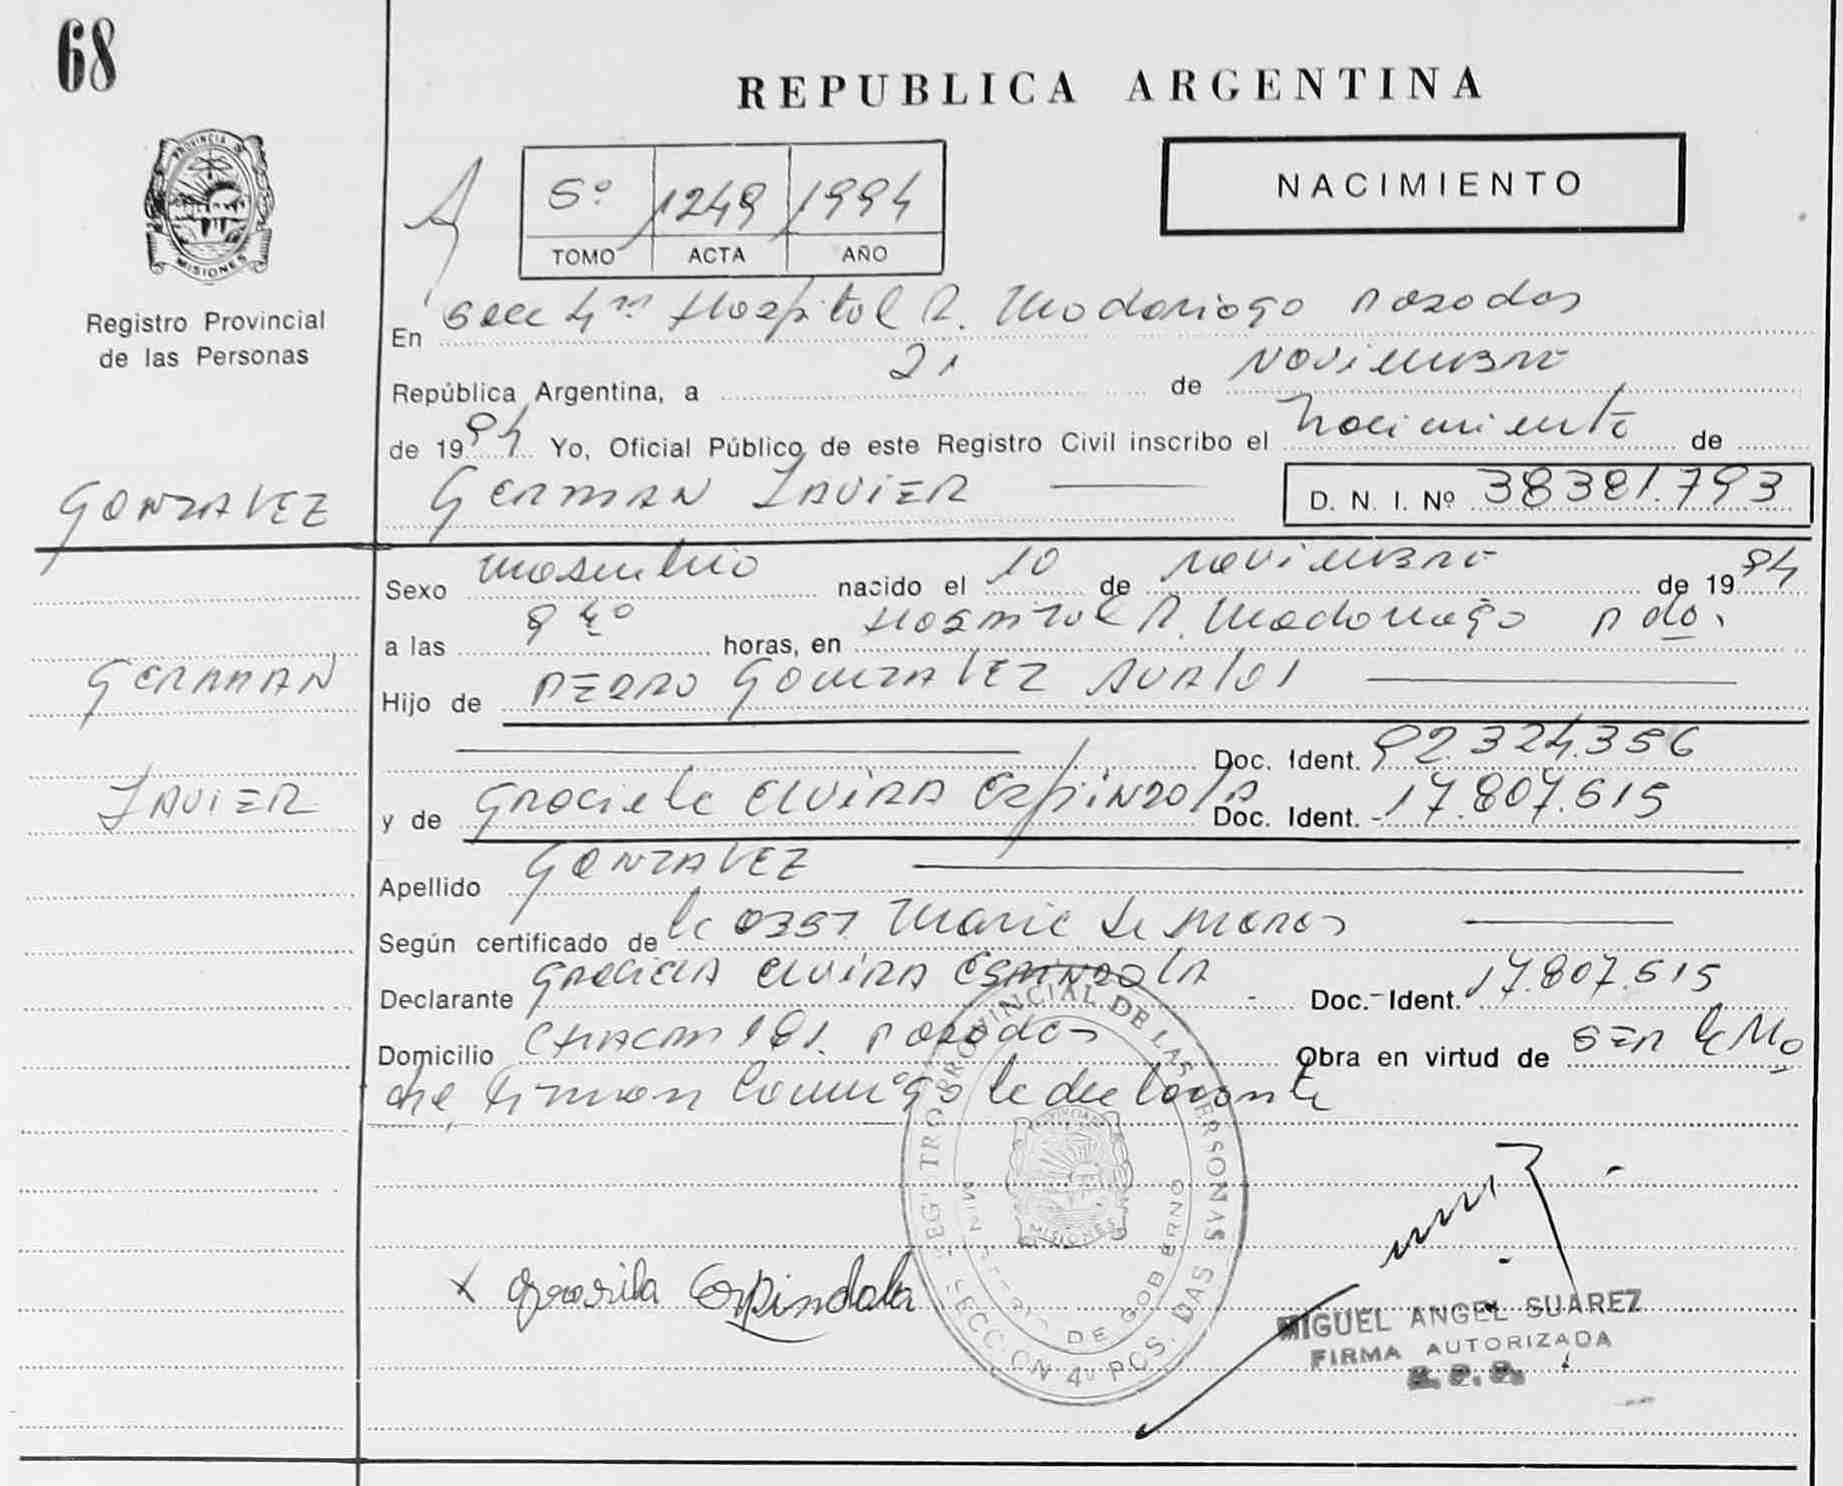 68
REPUBLICA ARGENTINA
PROVINCIA D
MISIONES
Registro Provincial
de las Personas
NACIMIENTO
5º 1249 1994
TOMO ACTA AÑO
En Secc 4ta Hospital R. Madariaga Posadas
República Argentina, a 21 de Noviembre
de 1994 Yo, Oficial Público de este Registro Civil inscribo el Nacimiento de
GONZALEZ GERMAN JAVIER D. N. I. Nº 38381.793
Sexo Masculino nacido el 10 de Noviembre de 1994
a las horas, en Hospital R. Madariaga Pdas.
GERMAN
Hijo de PEDRO GONZALEZ AVALOS
Doc. Ident. 92.324.356
JAVIER
y de Graciela ELVIRA ESPINDOLA Doc. Ident. 17.807.515
Apellido GONZALEZ
Según certificado de la Obst. Maria
Declarante GRACIELA ELVIRA ESPINDOLA Doc. Ident. 17.807.515
Domicilio 181. Posadas Obra en virtud de SER la Ma
dre, firman conmigo la declarante
REGISTRO PROVINCIAL DE LAS PERSONAS
MINISTERIO DE GOBIERNO
PROVINCIA
MISIONES
SECCION 4º POSADAS
x Graciela Espindola
MIGUEL ANGEL SUAREZ
FIRMA AUTORIZADA
R. P. P.